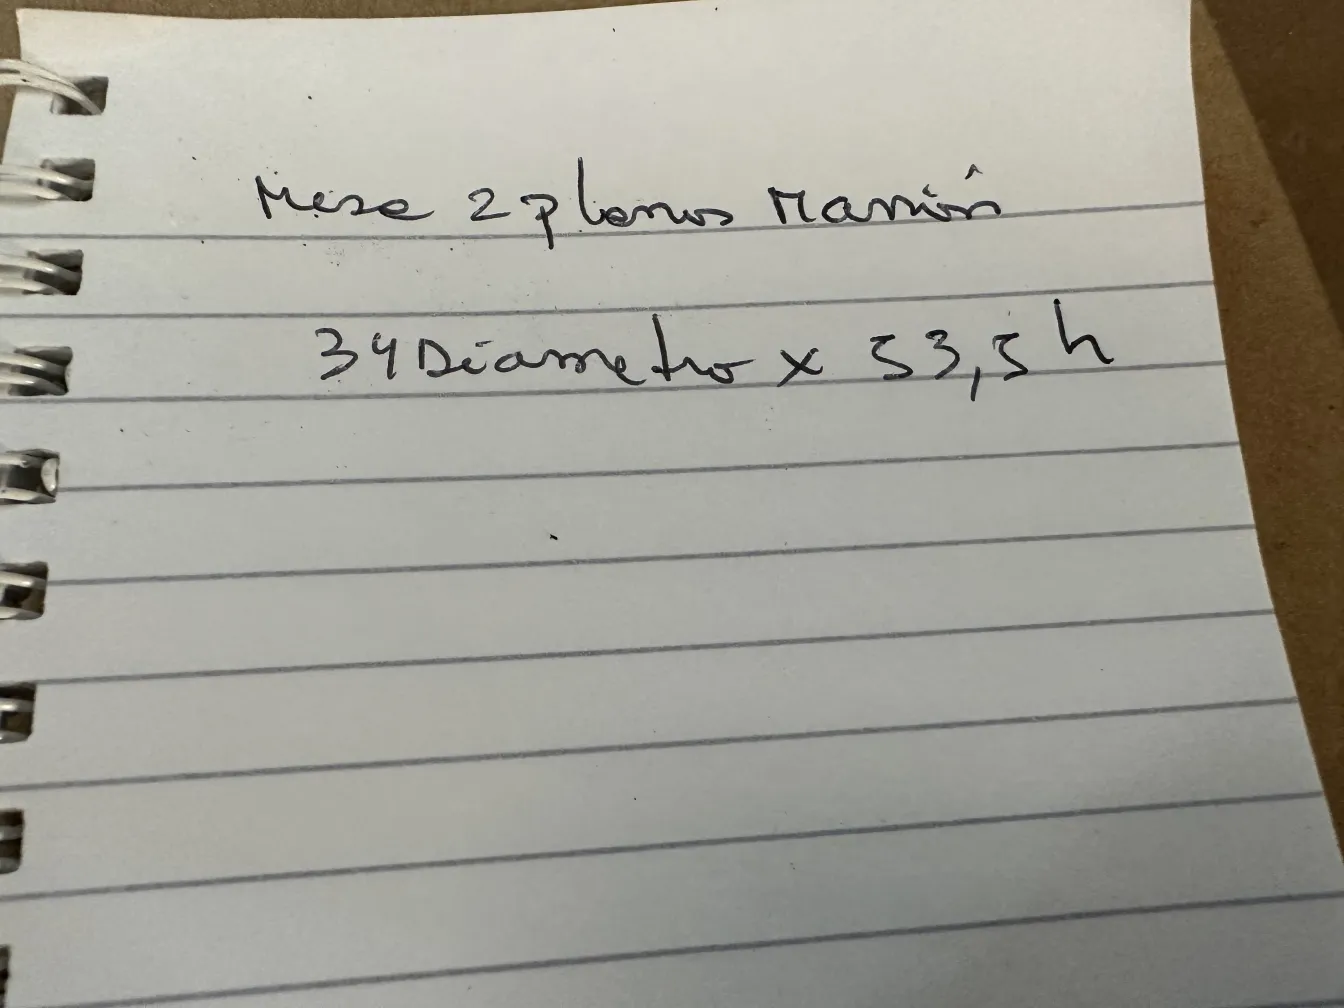 Mesa 2 planos Marrón
34 Diametro x 53,5 h